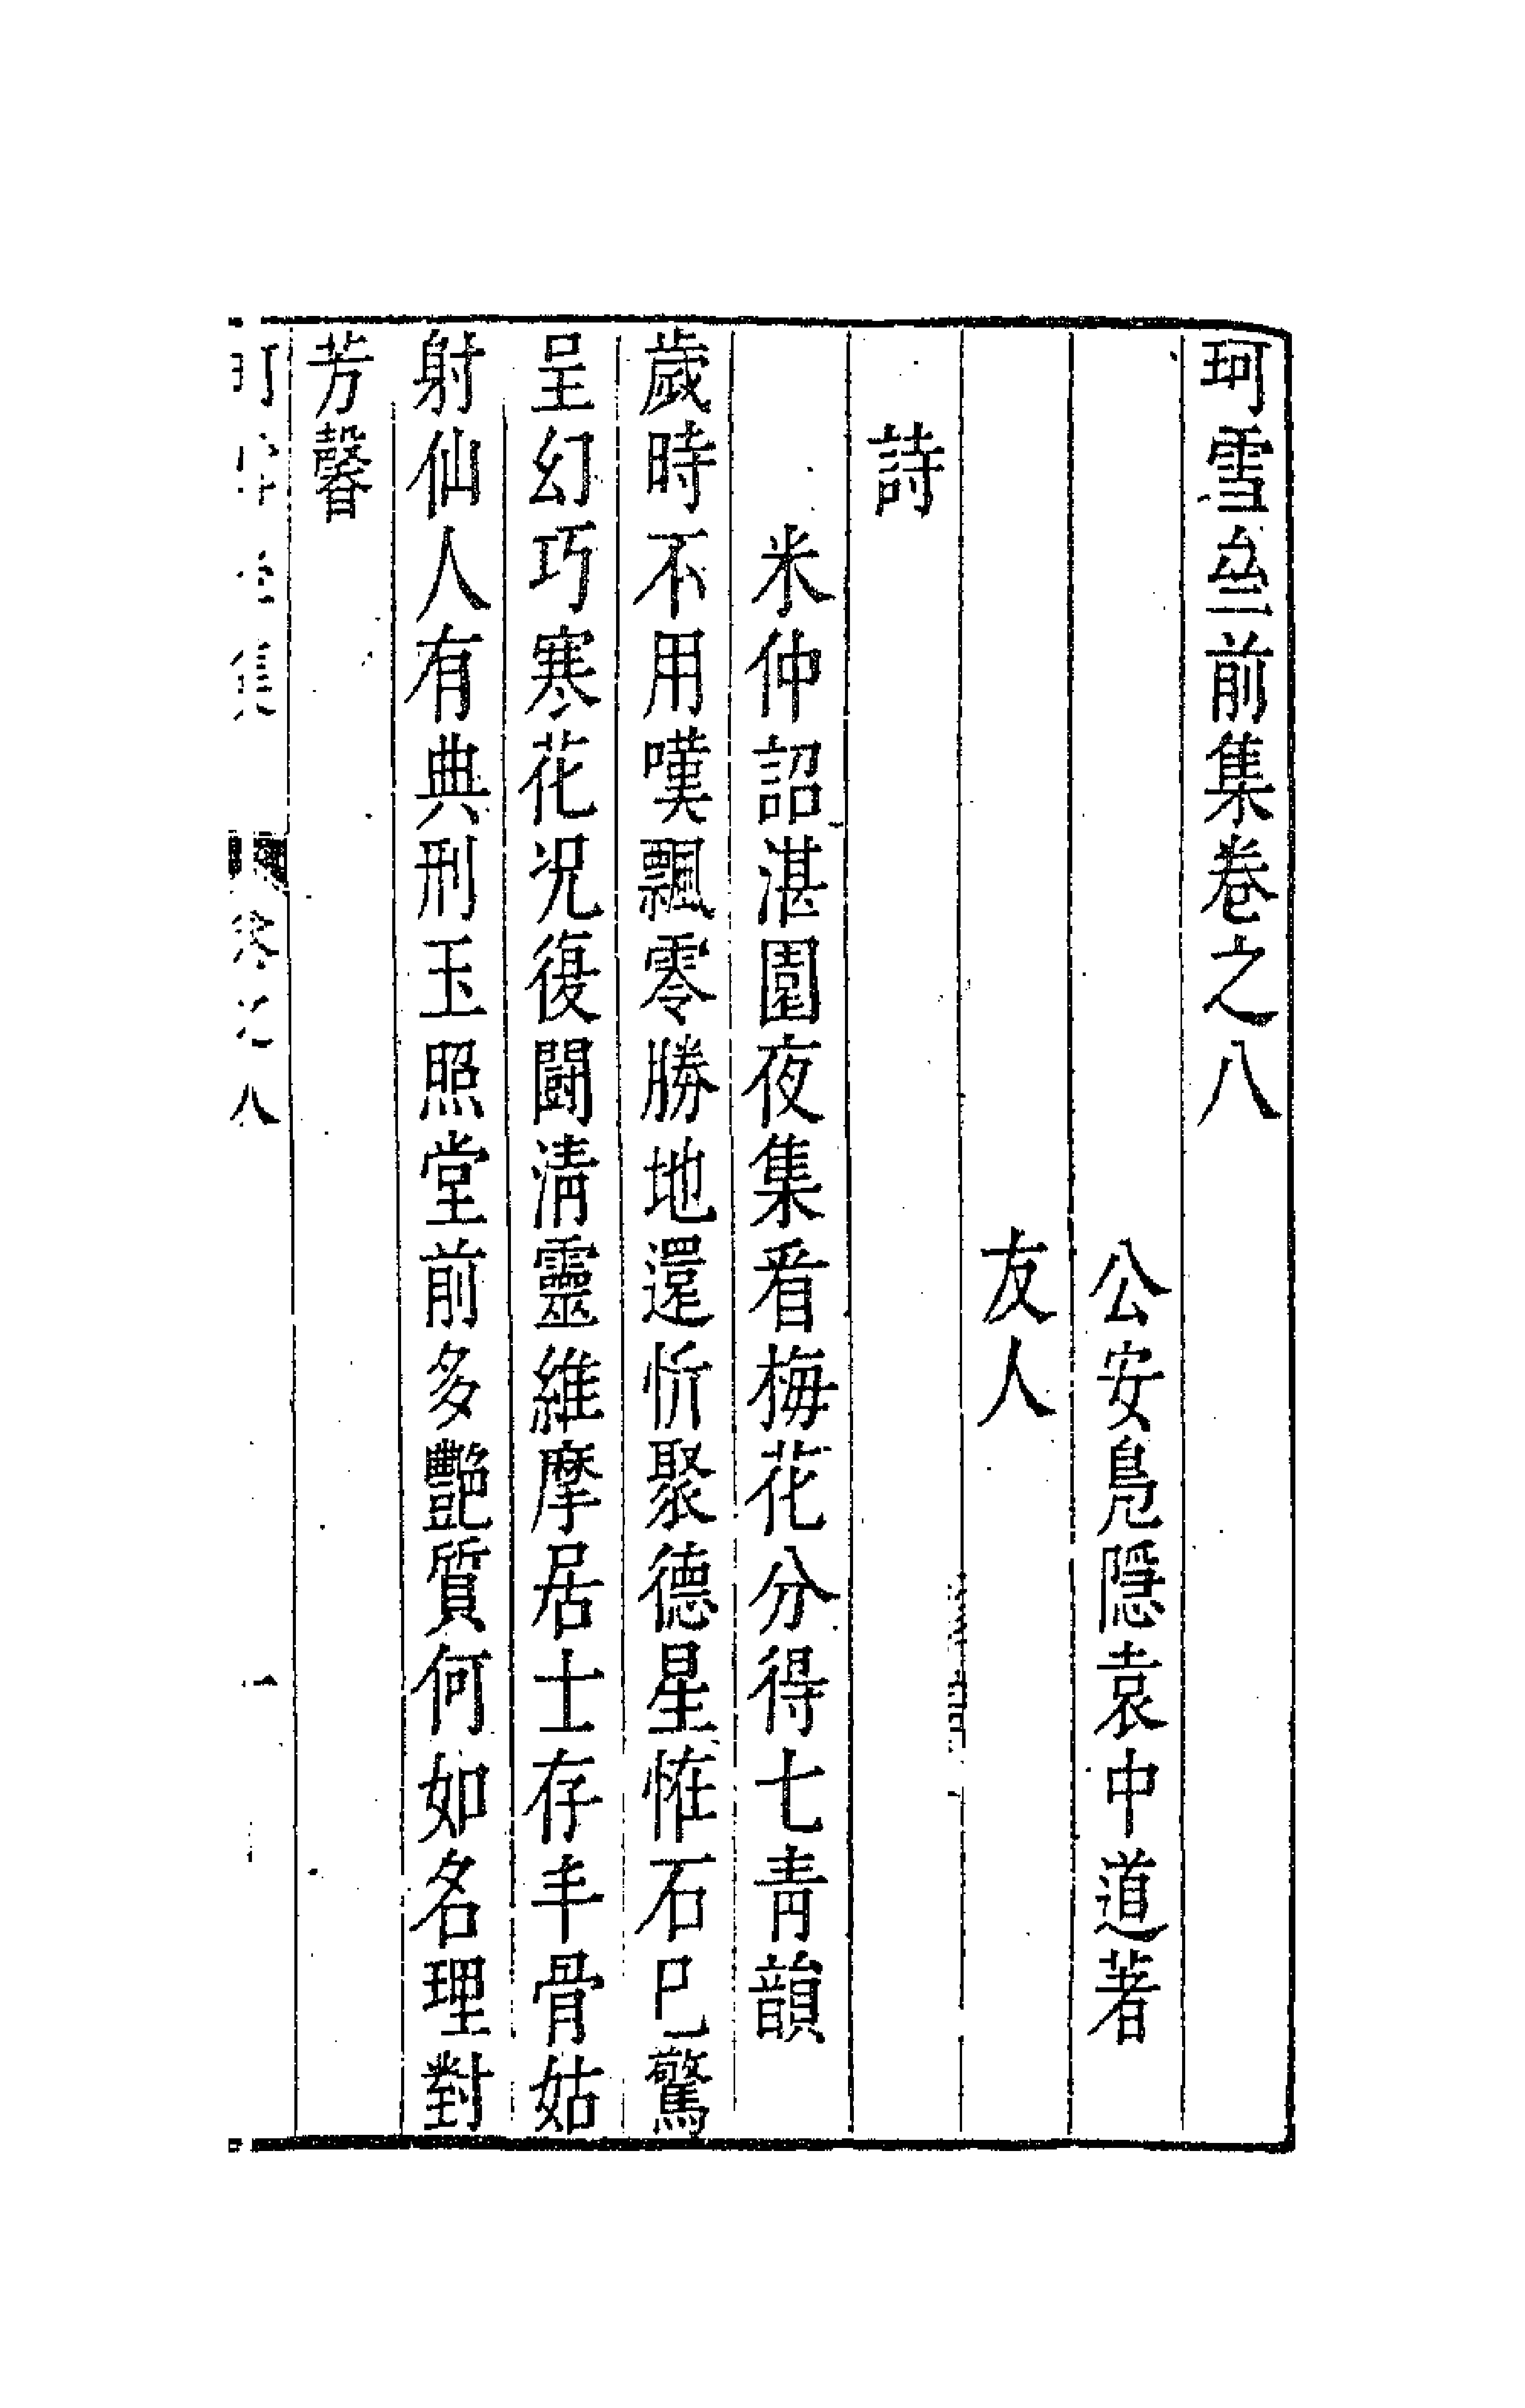 珂雪齋前集卷之八
公安鳧隱袁中道著
友人
詩
米仲詔湛園夜集看梅花分得七青韻
歲時不用嘆飄零勝地還忻聚德星恠石已驚
呈幻巧寒花况復鬪清靈維摩居士存丰骨姑
射仙人有典刑玉照堂前多艷質何如名理對
芳馨
卷之八